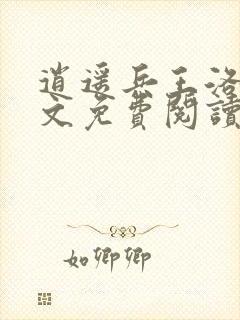 逍遥兵王洛
文免費閱讀
如卿卿